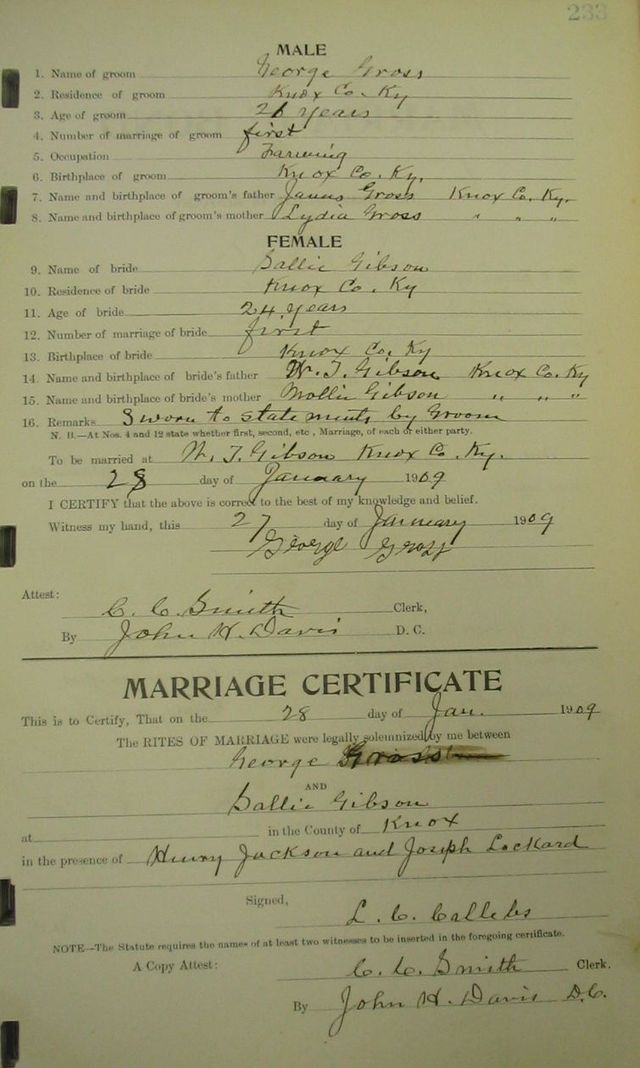 233
MALE
1. Name of groom George Gross
2. Residence of groom Knox Co. Ky
3. Age of groom 21 years
4. Number of marriage of groom first
5. Occupation Farming
6. Birthplace of groom Knox Co. Ky.
7. Name and birthplace of groom's father Gross Knox Co. Ky.
8. Name and birthplace of groom's mother Lydia Gross " " "
FEMALE
9. Name of bride Sallie Gibson
10. Residence of bride Knox Co. Ky
11. Age of bride 24 years
12. Number of marriage of bride first
13. Birthplace of bride Knox Co. Ky
14. Name and birthplace of bride's father W. T. Gibson Knox Co. Ky
15. Name and birthplace of bride's mother Mollie Gibson " " "
16. Remarks Sworn to statements by Groom
N. B.—At Nos. 4 and 12 state whether first, second, etc , Marriage, of each or either party.
To be married at W. T. Gibson Knox Co. Ky.
on the 28 day of January 1909
I CERTIFY that the above is correct to the best of my knowledge and belief.
Witness my hand, this 27 day of January 1909
George Gross
Attest:
C. C. Smith Clerk,
By John H. Davis D. C.
MARRIAGE CERTIFICATE
This is to Certify, That on the 28 day of Jan. 1909
The RITES OF MARRIAGE were legally solemnized by me between
George Gross
AND
Sallie Gibson
at in the County of Knox
in the presence of Henry Jackson and Joseph Lockard
Signed,
L. C. Callebs
NOTE—The Statute requires the names of at least two witnesses to be inserted in the foregoing certificate.
A Copy Attest: C. C. Smith Clerk.
By John H. Davis D.C.